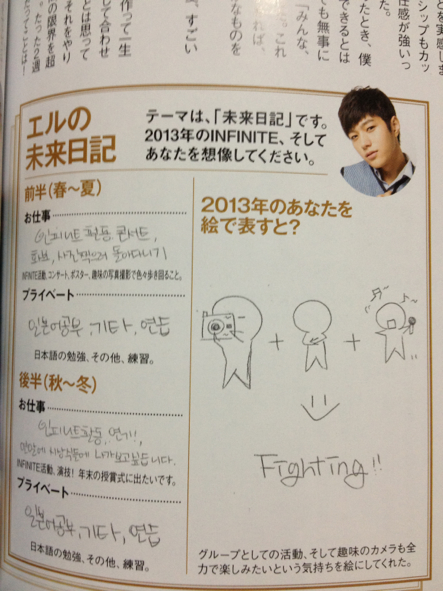 とを実感しま
シップもカッ
任感が強いっ
た。
たとき、僕
できるとは
ても無事に
「みんな、
。これ
れば、
なものを
、すごい
作って一生
して合わせ
とは思って
それをやり
の限界を超
。たった2週
たってことは！
エルの
未来日記
テーマは、「未来日記」です。
2013年のINFINITE、そして
あなたを想像してください。
前半（春〜夏）
お仕事
인피니트 활동, 콘서트,
화보, 사진찍으러 돌아다니기
INFINITE活動、コンサート、ポスター、趣味の写真撮影で色々歩き回ること。
プライベート
일본어공부, 기타, 연습
日本語の勉強、その他、練習。
後半（秋〜冬）
お仕事
인피니트활동, 연기!!,
연말에 시상식들에 나가보고싶습니다.
INFINITE活動、演技！ 年末の授賞式に出たいです。
プライベート
일본어공부, 기타, 연습
日本語の勉強、その他、練習。
2013年のあなたを
絵で表すと？
+ +
Fighting!!
グループとしての活動、そして趣味のカメラも全
力で楽しみたいという気持ちを絵にしてくれた。